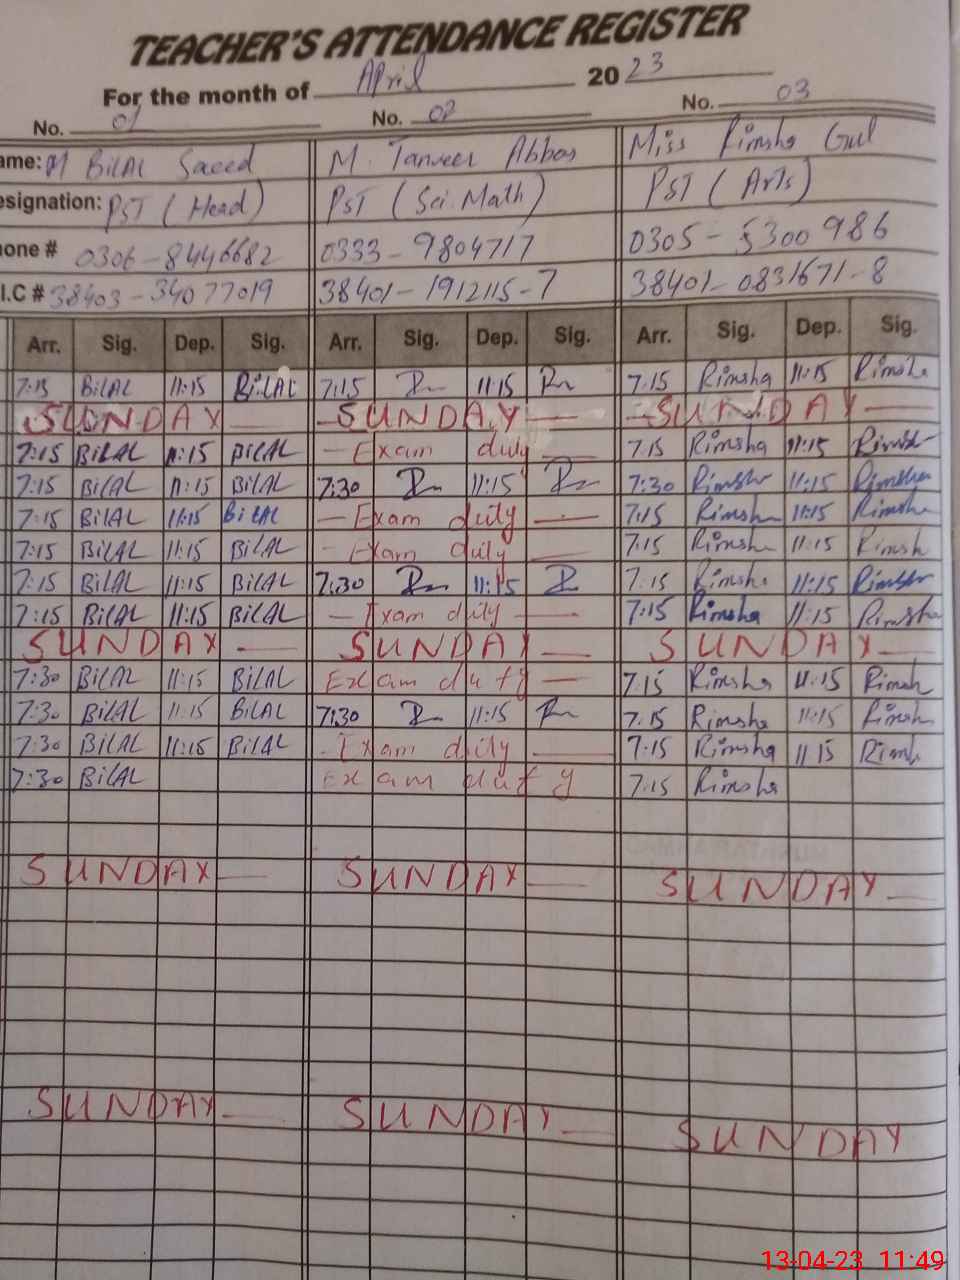 TEACHER'S ATTENDANCE REGISTER
For the month of April 2023
No. 01 No. 02 No. 03
ame: M BilAL Saeed M. Tanveer Abbas Miss Rimsha Gul
esignation: PST (Head) PST (Sci. Math) PST (Arts)
one # 0306-8446682 0333-9804717 0305-5300986
.I.C # 38403-34077019 38401-1912115-7 38401-0831671-8
Arr. Sig. Dep. Sig. Arr. Sig. Dep. Sig. Arr. Sig. Dep. Sig.
7:15 BilAL 11:15 BilAL 7:15 11:15 7:15 Rimsha 11:15 Rimsha
SUNDAY SUNDAY SUNDAY
7:15 BilAL 11:15 BilAL Exam duty 7:15 Rimsha 11:15 Rimsha
7:15 BilAL 11:15 BilAL 7:30 11:15 7:30 Rimsha 11:15 Rimsha
7:15 BilAL 11:15 BilAL Exam duty 7:15 Rimsha 11:15 Rimsha
7:15 BilAL 11:15 BilAL Exam duty 7:15 Rimsha 11:15 Rimsh
7:15 BilAL 11:15 BilAL 7:30 11:15 7:15 Rimsha 11:15 Rimsha
7:15 BilAL 11:15 BilAL Exam duty 7:15 Rimsha 11:15 Rimsha
SUNDAY SUNDAY SUNDAY
7:30 BilAL 11:15 BilAL Exam duty 7:15 Rimsha 11:15 Rimsh
7:30 BilAL 11:15 BilAL 7:30 11:15 7:15 Rimsha 11:15 Rimsh
7:30 BilAL 11:15 BilAL Exam duty 7:15 Rimsha 11:15 Rimh
7:30 BilAL Exam duty 7:15 Rimsha
SUNDAY SUNDAY SUNDAY
SUNDAY SUNDAY SUNDAY
13-04-23 11:49